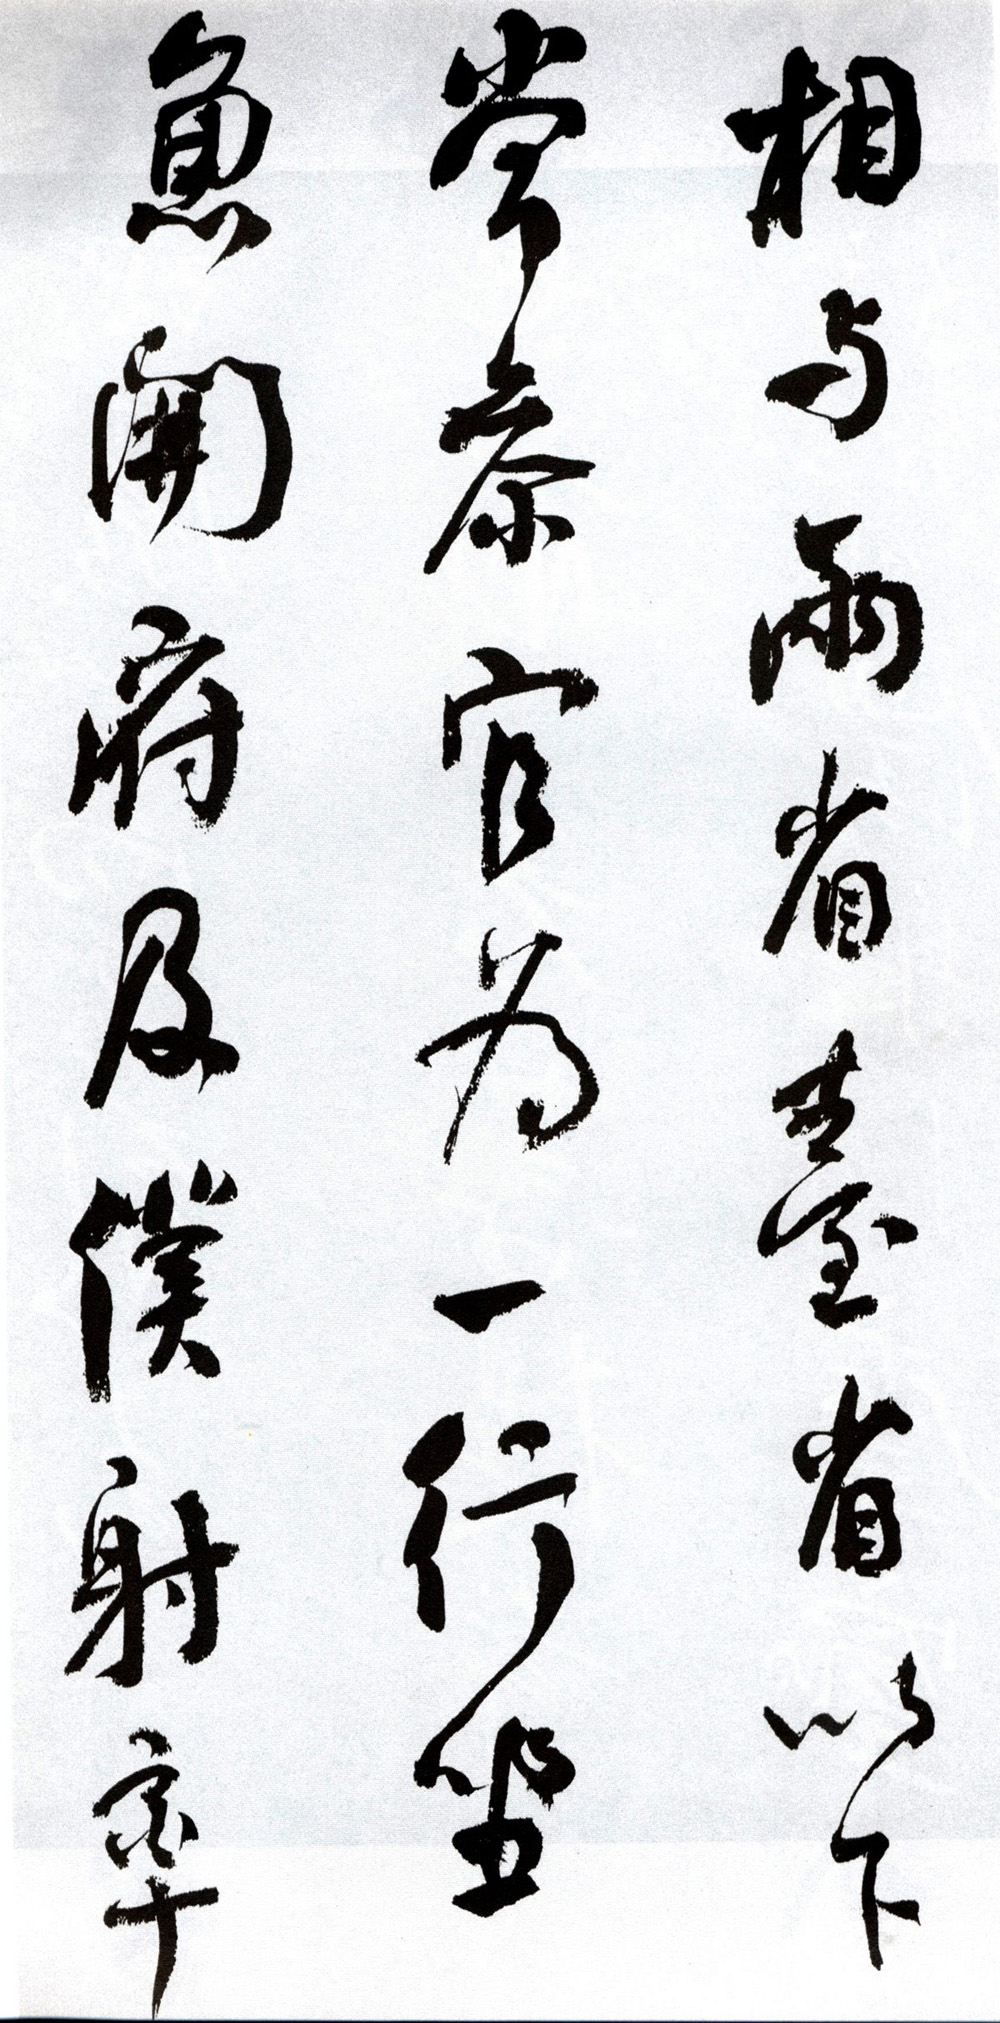 相与兩省臺省以下
常参官为一行坐
魚開府及僕射率